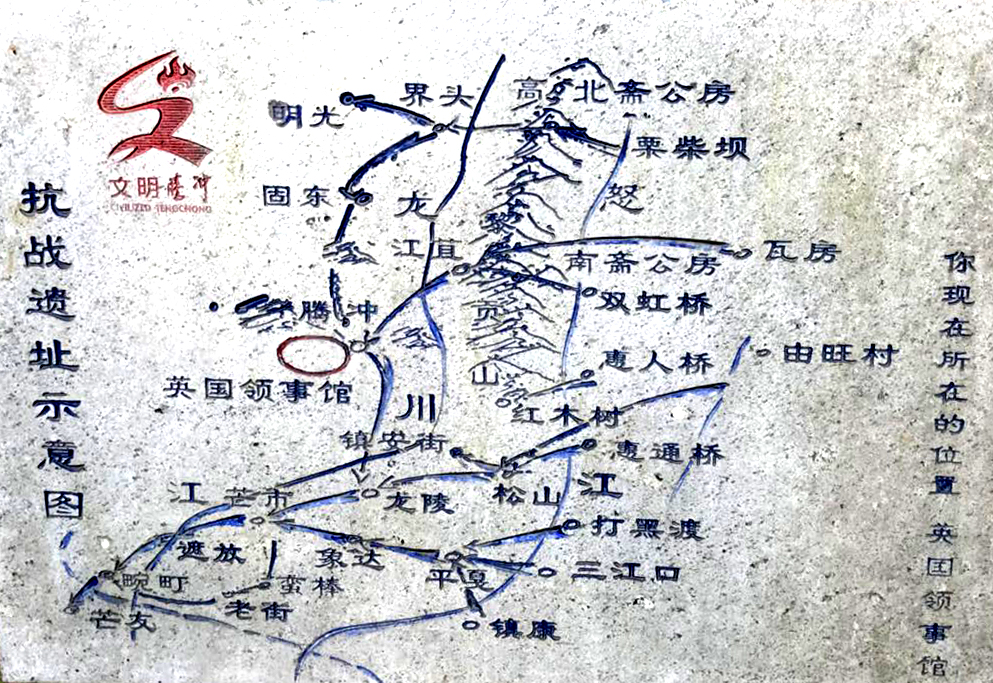 抗战遗址示意图
文明腾冲
CIVILIZED TENGCHONG
明光
界头
高
北斋公房
栗柴坝
固东
龙
怒
黎
江苴
南斋公房
瓦房
双虹桥
腾冲
贡
山
英国领事馆
惠人桥
由旺村
川
红木树
镇安街
惠通桥
江
芒市
龙陵
松山
江
遮放
象达
打黑渡
畹町
蛮棒
平戛
三江口
芒友
老街
镇康
你现在所在的位置 英国领事馆